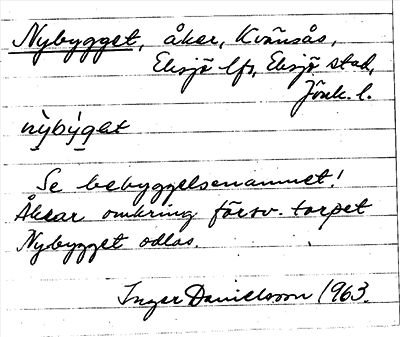 Nybygget, åker, Kvänsås,
Eksjö lfs, Eksjö stad,
Jönk. l.
nỳbýgat
Se bebyggelsenamnet!
Åkrar omkring försv. torpet
Nybygget odlas.
Inger Danielsson 1963.